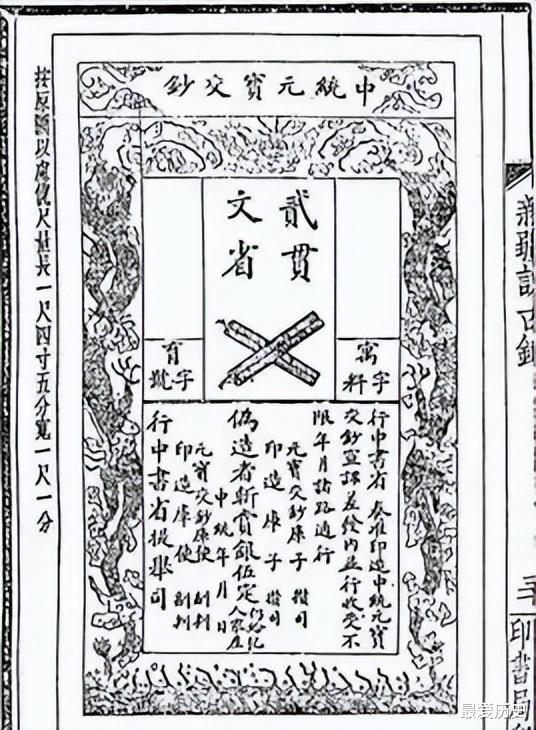 印書局
中統元寶交鈔
貳貫
文省
字料
字號
行中書省 奏准印造中統元寶
交鈔宣課差發內並行收受不
限年月諸路通行
元寶交鈔庫子 攢司
印造庫子 攢司
偽造者斬賞銀伍定 仍給犯人家產
中統 年 月 日
元寶交鈔庫使 副判
印造庫使 副判
行中書省提舉司
按原鈔以尺量長一尺四寸五分寬一尺一分
最爱历史